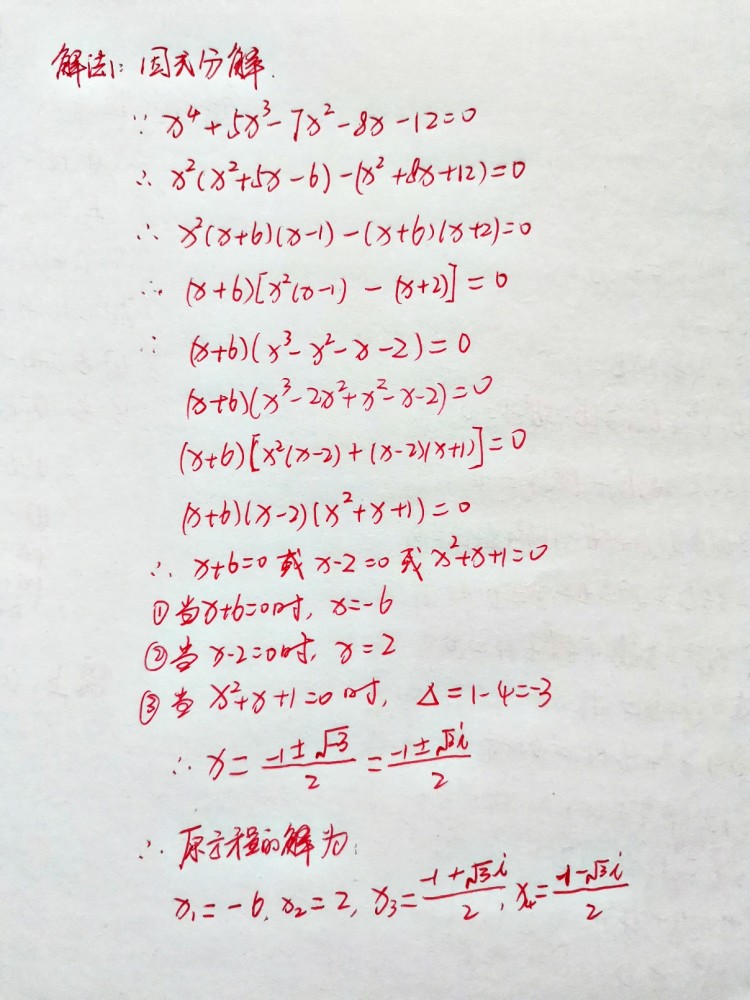 解法1: 因式分解.
∵ x⁴+5x³-7x²-8x-12=0
∴ x²(x²+5x-6)-(x²+8x+12)=0
∴ x²(x+6)(x-1)-(x+6)(x+2)=0
∴ (x+6)[x²(x-1)-(x+2)]=0
∴ (x+6)(x³-x²-x-2)=0
(x+6)(x³-2x²+x²-x-2)=0
(x+6)[x²(x-2)+(x-2)(x+1)]=0
(x+6)(x-2)(x²+x+1)=0
∴ x+6=0 或 x-2=0 或 x²+x+1=0
①当x+6=0时, x=-6
②当 x-2=0时, x=2
③当 x²+x+1=0 时, Δ=1-4=-3
∴ x=(-1±√-3)/2=(-1±√3i)/2
∴ 原方程的解为:
x₁=-6, x₂=2, x₃=(-1+√3i)/2, x₄=(-1-√3i)/2